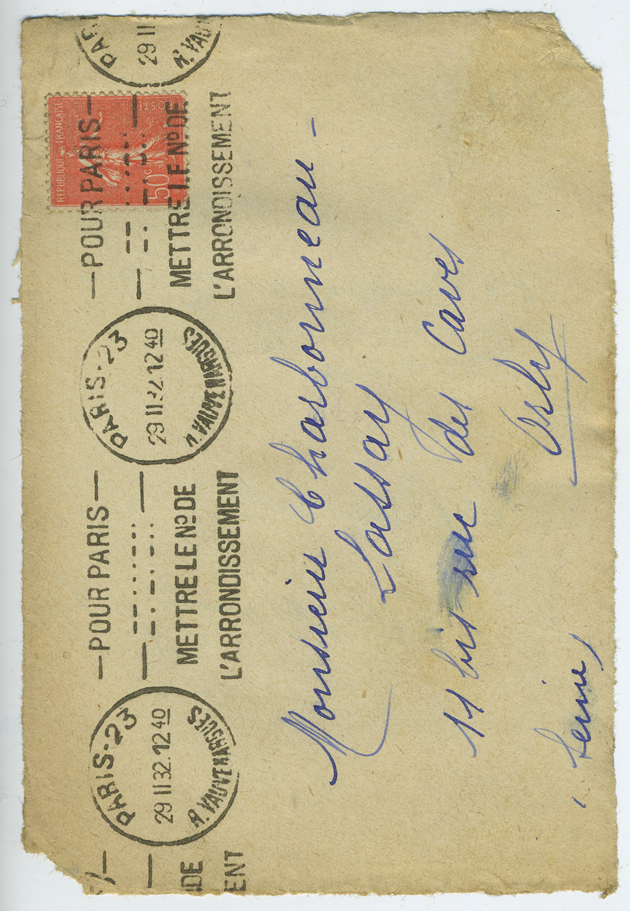 PARIS-23
29 II 32. 12 40
R. VAUVENARGUES
— POUR PARIS —
METTRE LE Nº DE
L'ARRONDISSEMENT
PARIS-23
29 II 32. 12 40
R. VAUVENARGUES
— POUR PARIS —
METTRE LE Nº DE
L'ARRONDISSEMENT
PARI
29 II
R. VAUV
DE
ENT
REPUBLIQUE FRANÇAISE
50c
Monsieur Charbonneau -
Lassay
11 bis rue des Caves
Orly
(Seine)